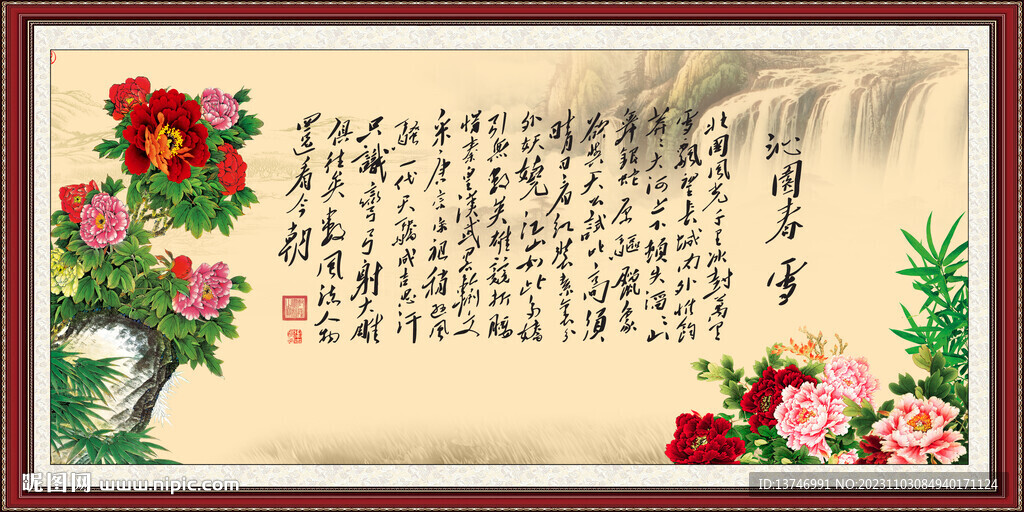 沁園春 雪
北國風光千里冰封萬里
雪飄望長城內外惟餘
莽莽大河上下頓失滔滔山
舞銀蛇原驅臘象
欲與天公試比高須
晴日看紅裝素裹分
外妖嬈江山如此多嬌
引無數英雄競折腰
惜秦皇漢武略輸文
采唐宗宋祖稍遜風
騷一代天驕成吉思汗
只識彎弓射大雕
俱往矣數風流人物
還看今朝
昵图网 www.nipic.com
ID:13746991 NO:20231103084940171124